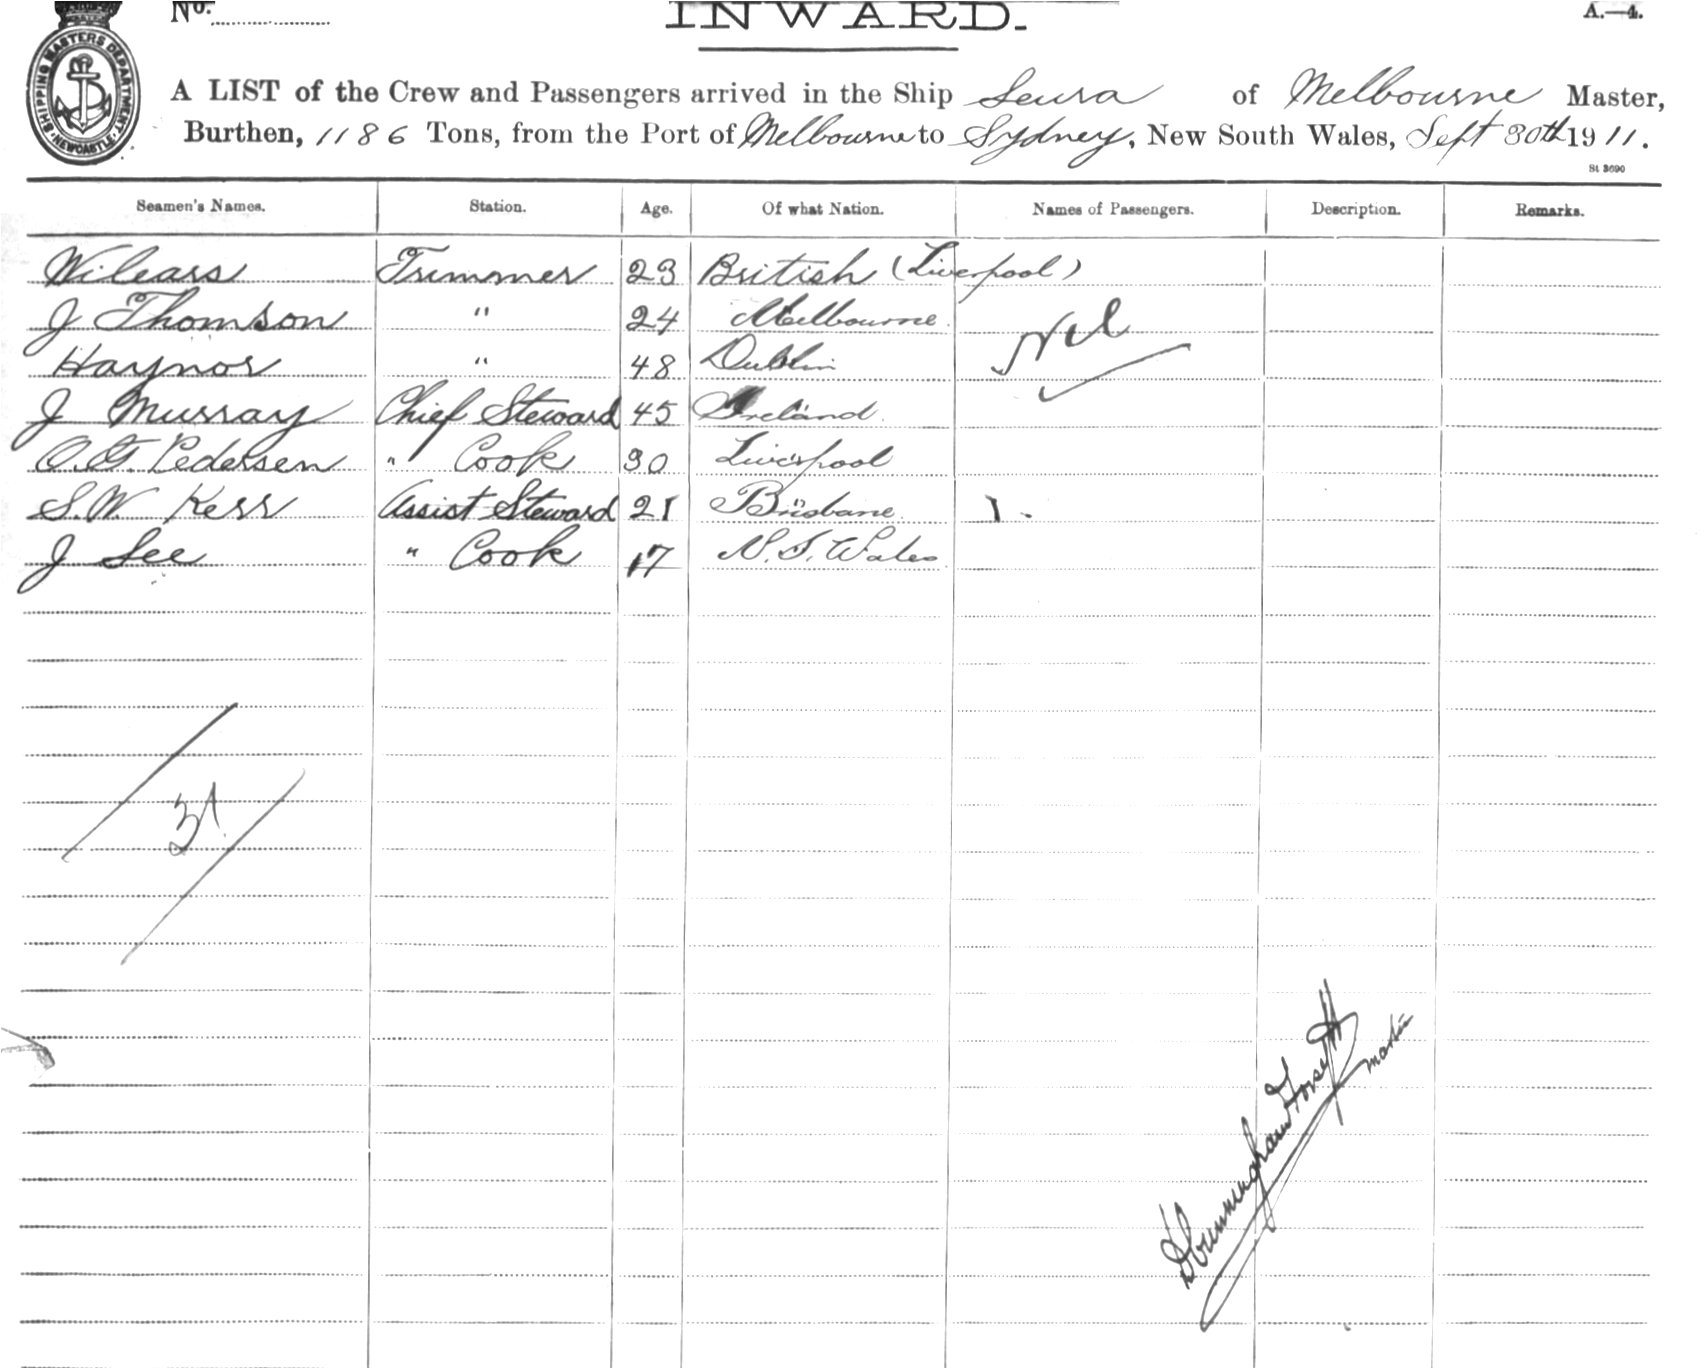 No.
INWARD.
A.—4.
SHIPPING MASTERS DEPARTMENT NEWCASTLE
A LIST of the Crew and Passengers arrived in the Ship Leura of Melbourne Master,
Burthen, 1186 Tons, from the Port of Melbourne to Sydney, New South Wales, Sept 30th 1911.
St 3690
Seamen's Names. Station. Age. Of what Nation. Names of Passengers. Description. Remarks.
Wilears Trimmer 23 British (Liverpool)
J Thomson " 24 Melbourne Nil
Haynor " 48 Dublin
J Murray Chief Steward 45 Ireland
O.G. Pedersen " Cook 30 Liverpool
S.W. Kerr Assist Steward 21 Brisbane 1.
J See " Cook 17 N.S. Wales
31